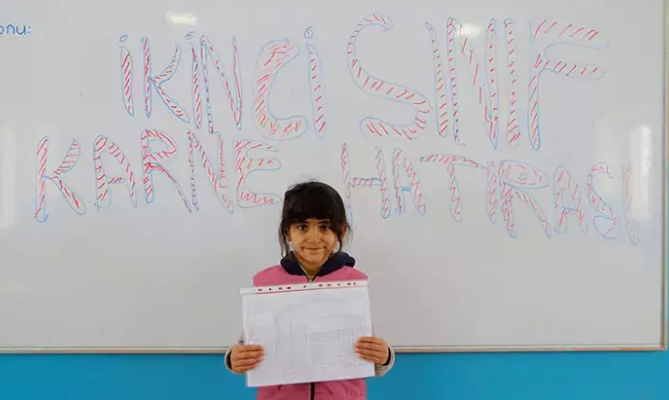 onu:
İKİNCİ SINIF
KARNE HATIRASI